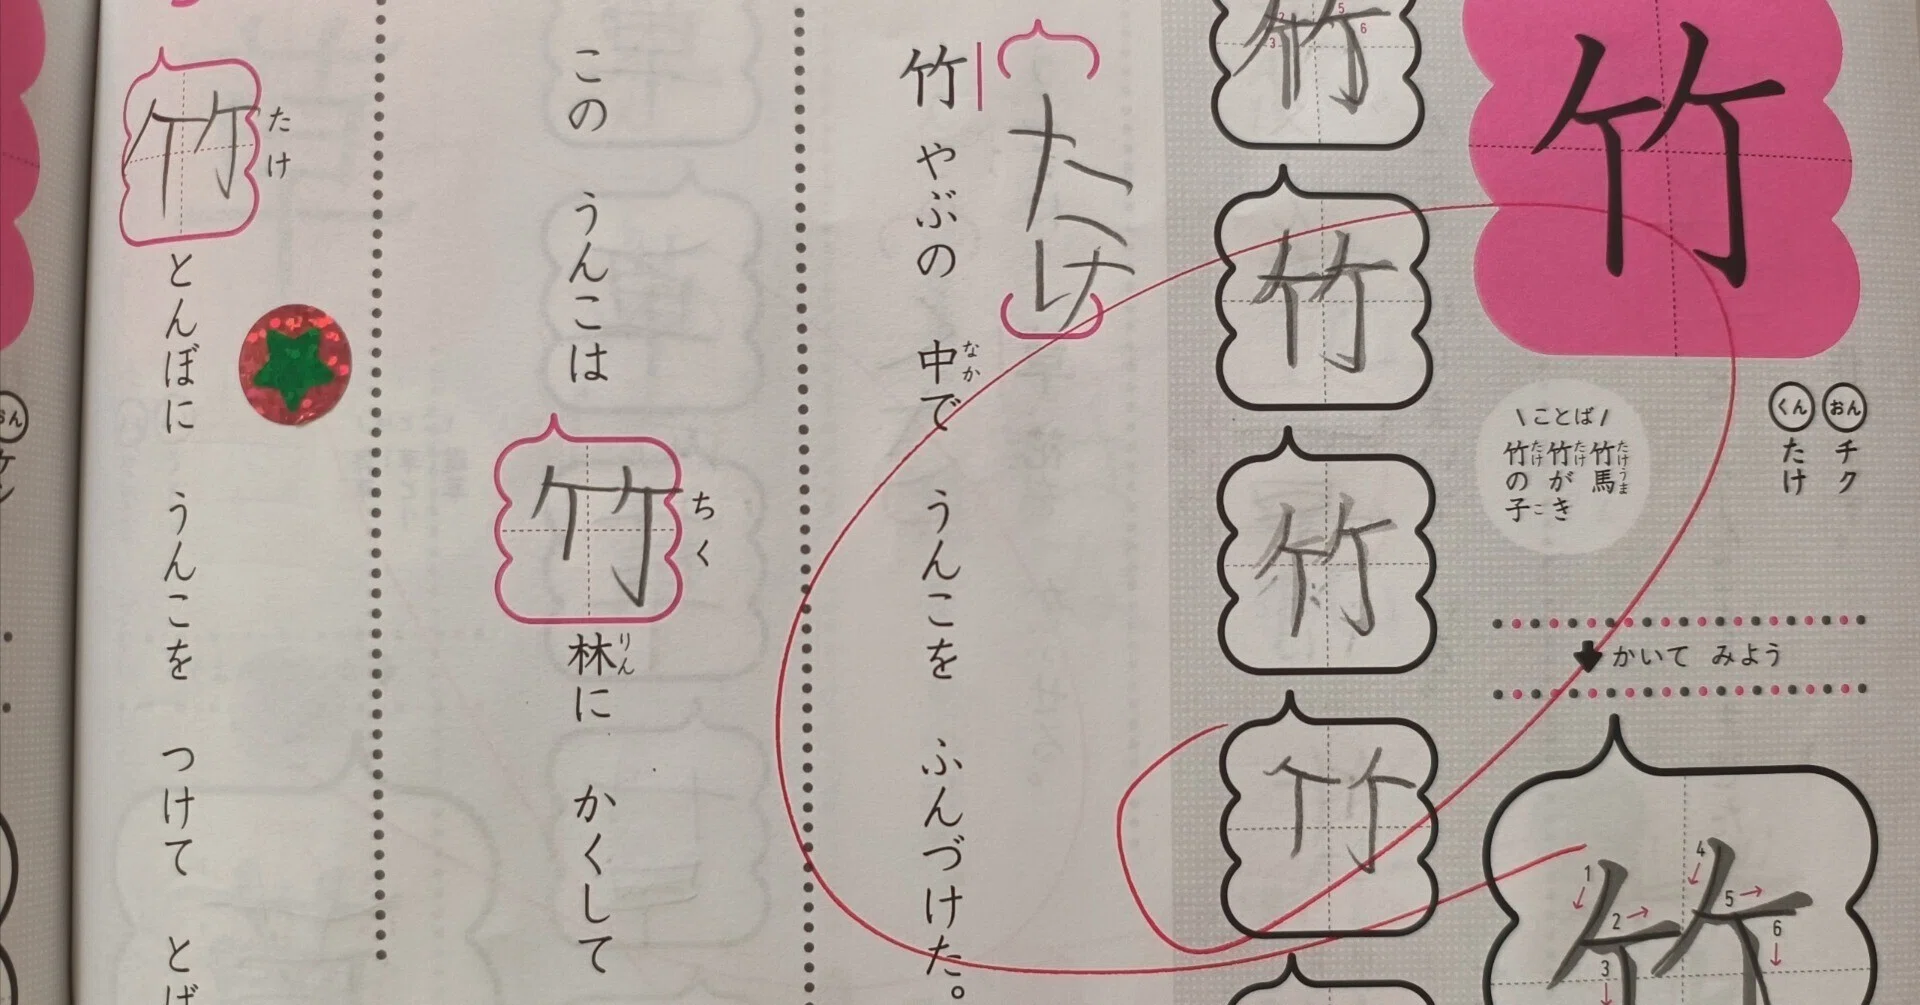 竹
おん チク
くん たけ
ことば
竹馬 たけうま
竹がき たけ
竹の子 たけ こ
かいて みよう
1 2 3 4 5 6
竹
竹
竹
竹
竹
たけ
竹やぶの 中で うんこを ふんづけた。
なか
この うんこは 竹林に かくして
ちく りん
竹とんぼに うんこを つけて とば
たけ